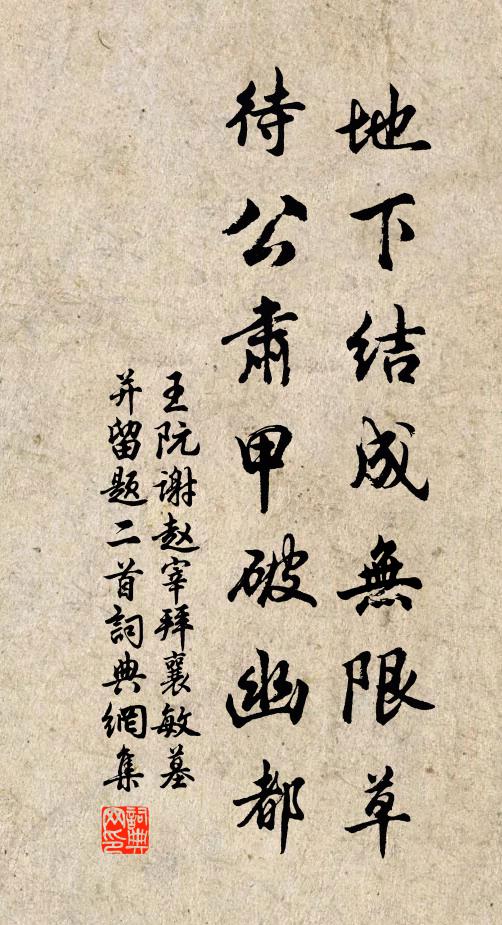 地下结成無限草
待公肅甲破幽都
王阮谢赵宰拜襄敏墓
并留题二首詞典網集
詞典网印